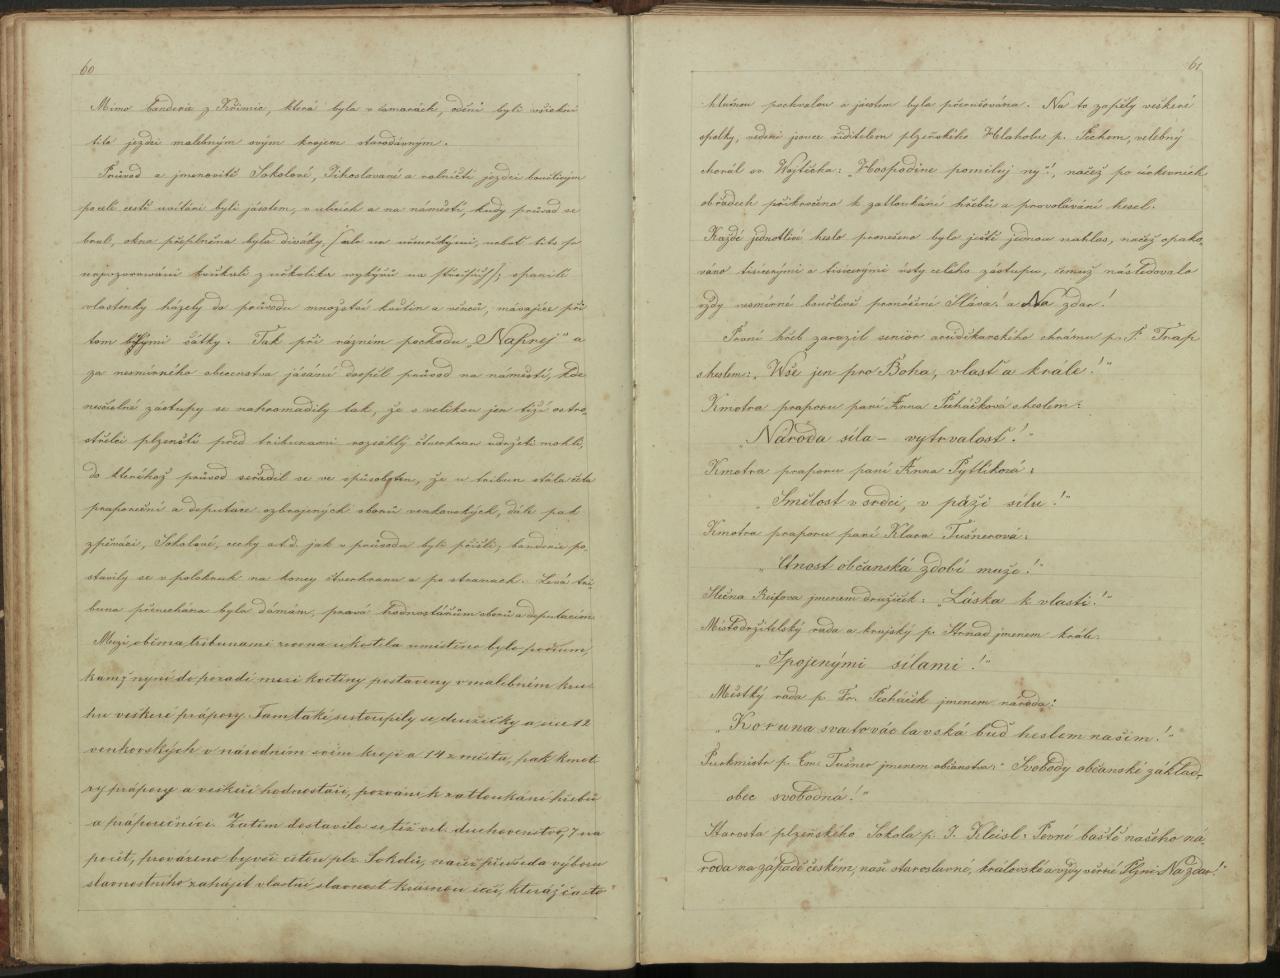 60
Mimo banderia z Křimic, která byla v čamarách, oděni byli všickni
tito jezdci malebným svým krojem starodávným.
Průvod a jmenovitě Sokolové, Tihoslované a rolničtí jezdci bouřlivým
po celé cestě uvítáni byli jásotem, v ulicích a na náměstí, kudy průvod se
bral, okna přeplněna byla diváky, neboť tito se
nepozorovaně koukali z několika vykýřů na; spanilé
vlastenky házely do průvodu množství květin a věnců, mávajíce při
tom bílými šátky. Tak při rázném pochodu „Napřej" a
za nesmírného obecenstva jásání dospěl průvod na náměstí, kde
nesčetné zástupy se nahromadily tak, že s velikou jen tíží ostro-
střelci plzeňští před tribunami rozsáhlý čtverhran udržeti mohli,
do kteréhož průvod seřadil se ve způsob ten, že u tribun stála četa
praporeční a deputace ozbrojených sborů venkovských, dále pak
zpěváci, Sokolové, cechy atd. jak v průvodu byli přišli; banderie po-
stavily se v polokruh na konci čtverhranu a po stranách. Levá tri-
buna přenechána byla dámám, pravá hodnostářům sborů a deputacím.
Mezi oběma tribunami zrovna u kostela umístěno bylo podium,
kamž nyní do pozadí mezi květiny postaveny v malebném kru-
hu veškeré prápory. Tam také sestoupily se družičky a sice 12
venkovských v národním svém kroji a 14 z města, pak kmot-
ry prápory a veškeří hodnostáři, pozváni k zatloukání hřebů
a práporečníci. Zatím dostavilo se též vel. duchovenstvo, 7 na
počet, provázeno byvši četou plz. Sokolů, načež předseda výboru
slavnostního zahájil vlastní slavnost krásnou řečí, kteráž často
61
hlučnou pochvalou a jásotem byla přerušována. Na to zapěly veškeré
spolky, vedeni jsouce ředitelem plzeňského Hlaholu p. Pechem, velebný
chorál sv. Vojtěcha: „Hospodine pomiluj ny"!, načež po církevních
obřadech přikročeno k zatloukání hřebů a provolávání hesel.
Každé jednotlivé heslo proneseno bylo ještě jednou nahlas, načež opako-
váno tisícerými a tisícerými ústy celého zástupu, čemuž následovalo
vždy nesmírně bouřlivě pronášené Sláva! a Na zdar!
První hřeb zarazil senior arciděkanského chrámu p. P. Trap
s heslem: „Vše jen pro Boha, vlasť a krále!"
Kmotra praporu paní Anna Pecháčková s heslem:
„Národa síla – vytrvalosť!"
Kmotra praporu paní Anna Pytlíková:
„Smělost v srdci, v paži sílu!"
Kmotra praporu paní Klara Tušnerová:
„Ctnost občanská zdobí muže!"
Slečna Reifova jmenem družiček: „Láska k vlasti!"
Místodržitelský rada a krajský p. Strnad jmenem krále:
„Spojenými silami!"
Městký rada p. Fr. Pecháček jmenem národa:
„Koruna svatováclavská buď heslem našim!"
Purkmistr p. Em. Tušner jmenem občanstva: „Svobody občanské základ-
obec svobodná!"
Starosta plzeňského Sokola p. J. Kleisl: „Pevné baště našeho ná-
roda na západě českém, naší staroslavné, královské a vždy věrné Plzni Na zdar!"